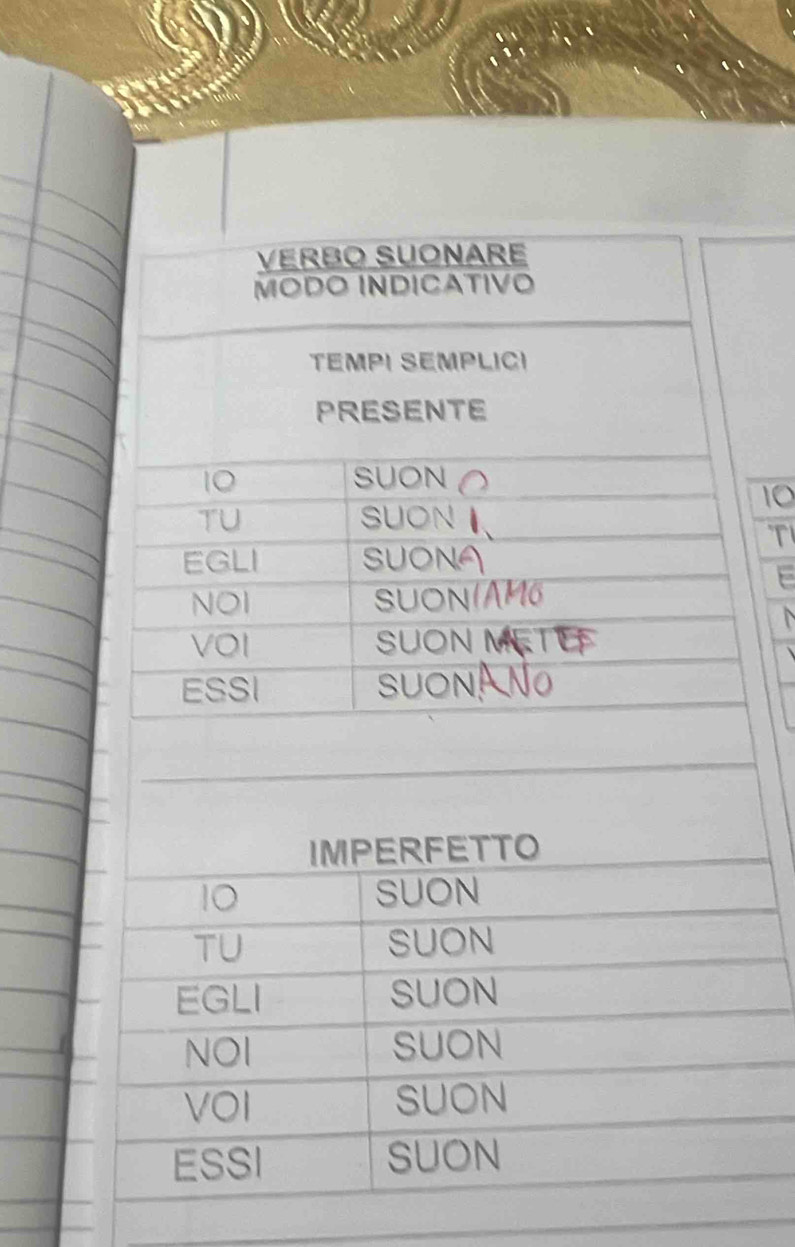 VERBO SUONARE
MODO INDICATIVO
TEMPI SEMPLICI
PRESENTE
IO SUON O
TU SUON I
EGLI SUONA
NOI SUONIAMO
VOI SUON
ESSI SUONANO
IMPERFETTO
IO SUON
TU SUON
EGLI SUON
NOI SUON
VOI SUON
ESSI SUON
IO